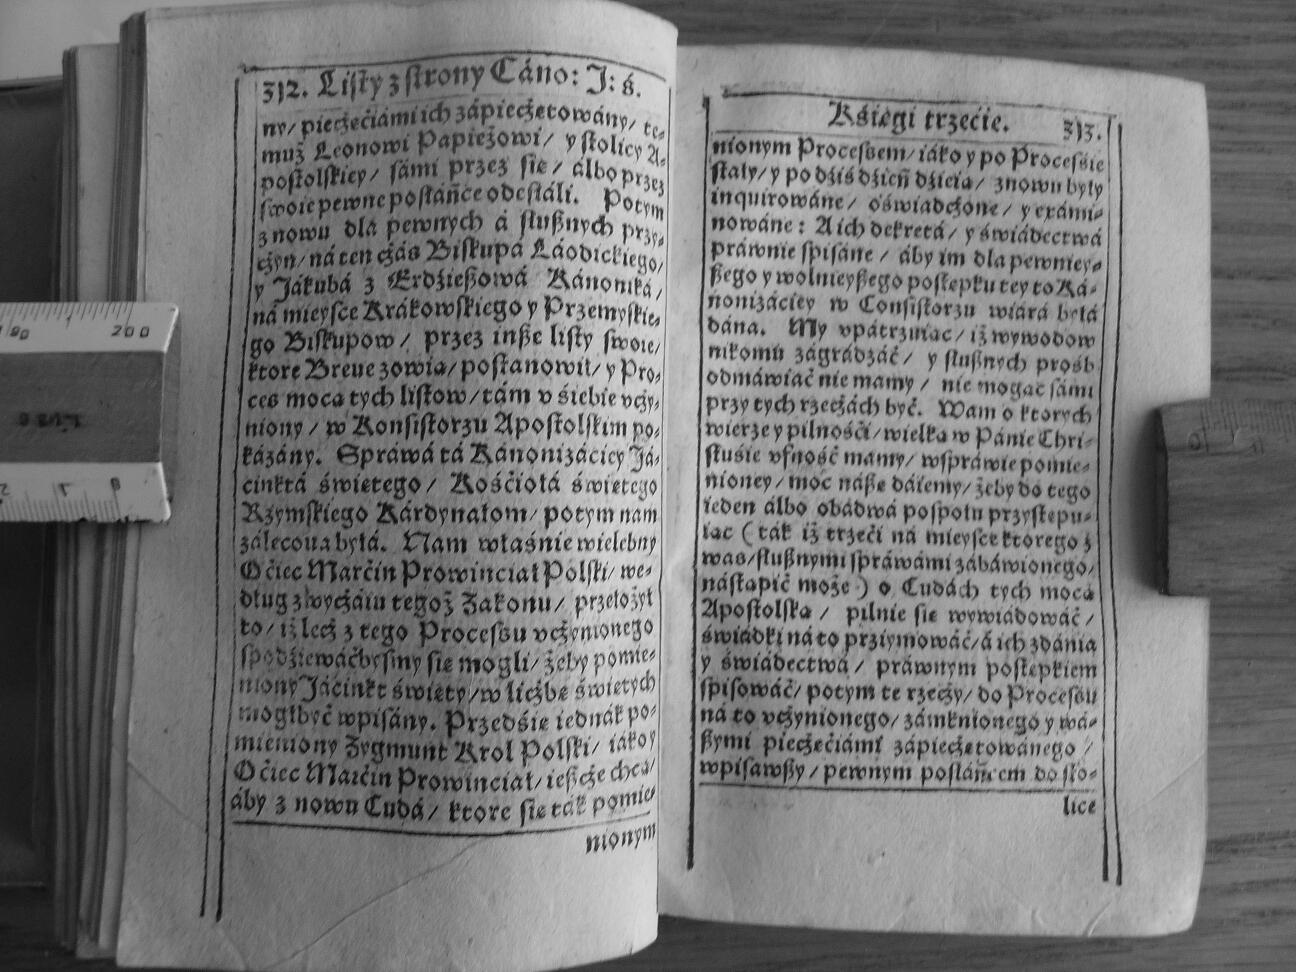 312. Listy z strony Cáno: J: ś.
ny/ pieczęćiámi ich zápieczętowány/ te-
muż Leonowi Papieżowi/ y stolicy A-
postolskiey/ sámi przez się/ álbo przez
swoie pewne posłáńce odesłáli. Potym
z nowu dla pewnych á słußnych przy-
czyn/ ná ten czás Biskupá Láodickiego/
y Jákubá z Erdzießowá Kánoniká/
ná mieysce Krákowskiego y Przemyskie-
go Biskupow/ przez inße listy swoie/
ktore Breue zowią/ postánowił/ y Pro-
ces mocą tych listow/ tám v śiebie vczy-
niony/ w Konsistorzu Apostolskim po-
kázány. Spráwá tá Kánonizáciey Já-
cinktá świętego/ Kośćiołá świętego
Rzymskiego Kárdynałom/ potym nam
zálecona byłá. Nam właśnie wielebny
Oćiec Marćin Prowinciał Polski/ we-
dług zwyczáiu tegoż Zakonu/ przełożył
to/ iż lecz z tego Procesßu vczynionego
spodźiewáćbysmy się mogli/ żeby pomie-
niony Jácinkt święty/ w liczbę świętych
mogł być wpisány. Przedśię iednák po-
mieniony Zygmunt Krol Polski/ iáko y
Oćiec Marćin Prowinciał/ ießcze chcą/
áby z nowu Cudá/ ktore się ták pomie-
nionym
Kśięgi trzećie. 313.
nionym Procesßem/ iáko y po Procesśie
stały/ y po dźiś dźień dźieią/ znowu były
inquirowáne/ oświadczone/ y exámi-
nowáne: A ich dekretá/ y świádectwá
práwnie spisáne/ áby im dla pewniey-
ßego y wolnieyßego postępku tey to Ká-
nonizáciey w Consistorzu wiárá byłá
dána. My vpátrzuiąc/ iż wywodow
nikomu zágradzáć/ y słußnych prośb
odmáwiáć nie mamy/ nie mogąc sámi
przy tych rzeczách być. Wam o ktorych
wierze y pilnośći/ wielką w Pánie Chri-
stuśie vfność mamy/ w spráwie pomie-
nioney/ moc náßę dáiemy/ żeby do tego
ieden álbo obádwá pospołu przystępu-
iąc (ták iż trzeći ná mieysce ktorego z
was/ słußnymi spráwámi zábáwionego/
nástąpić może) o Cudách tych mocą
Apostolską/ pilnie się wywiádowáć/
świadki ná to przyimowáć/ á ich zdánia
y świádectwá/ práwnym postępkiem
spisowáć/ potym te rzeczy/ do Procesßu
ná to vczynionego/ zámknionego y wá-
ßymi pieczęćiámi zápieczętowánego/
wpisawßy/ pewnym posłáńcem do sto-
lice